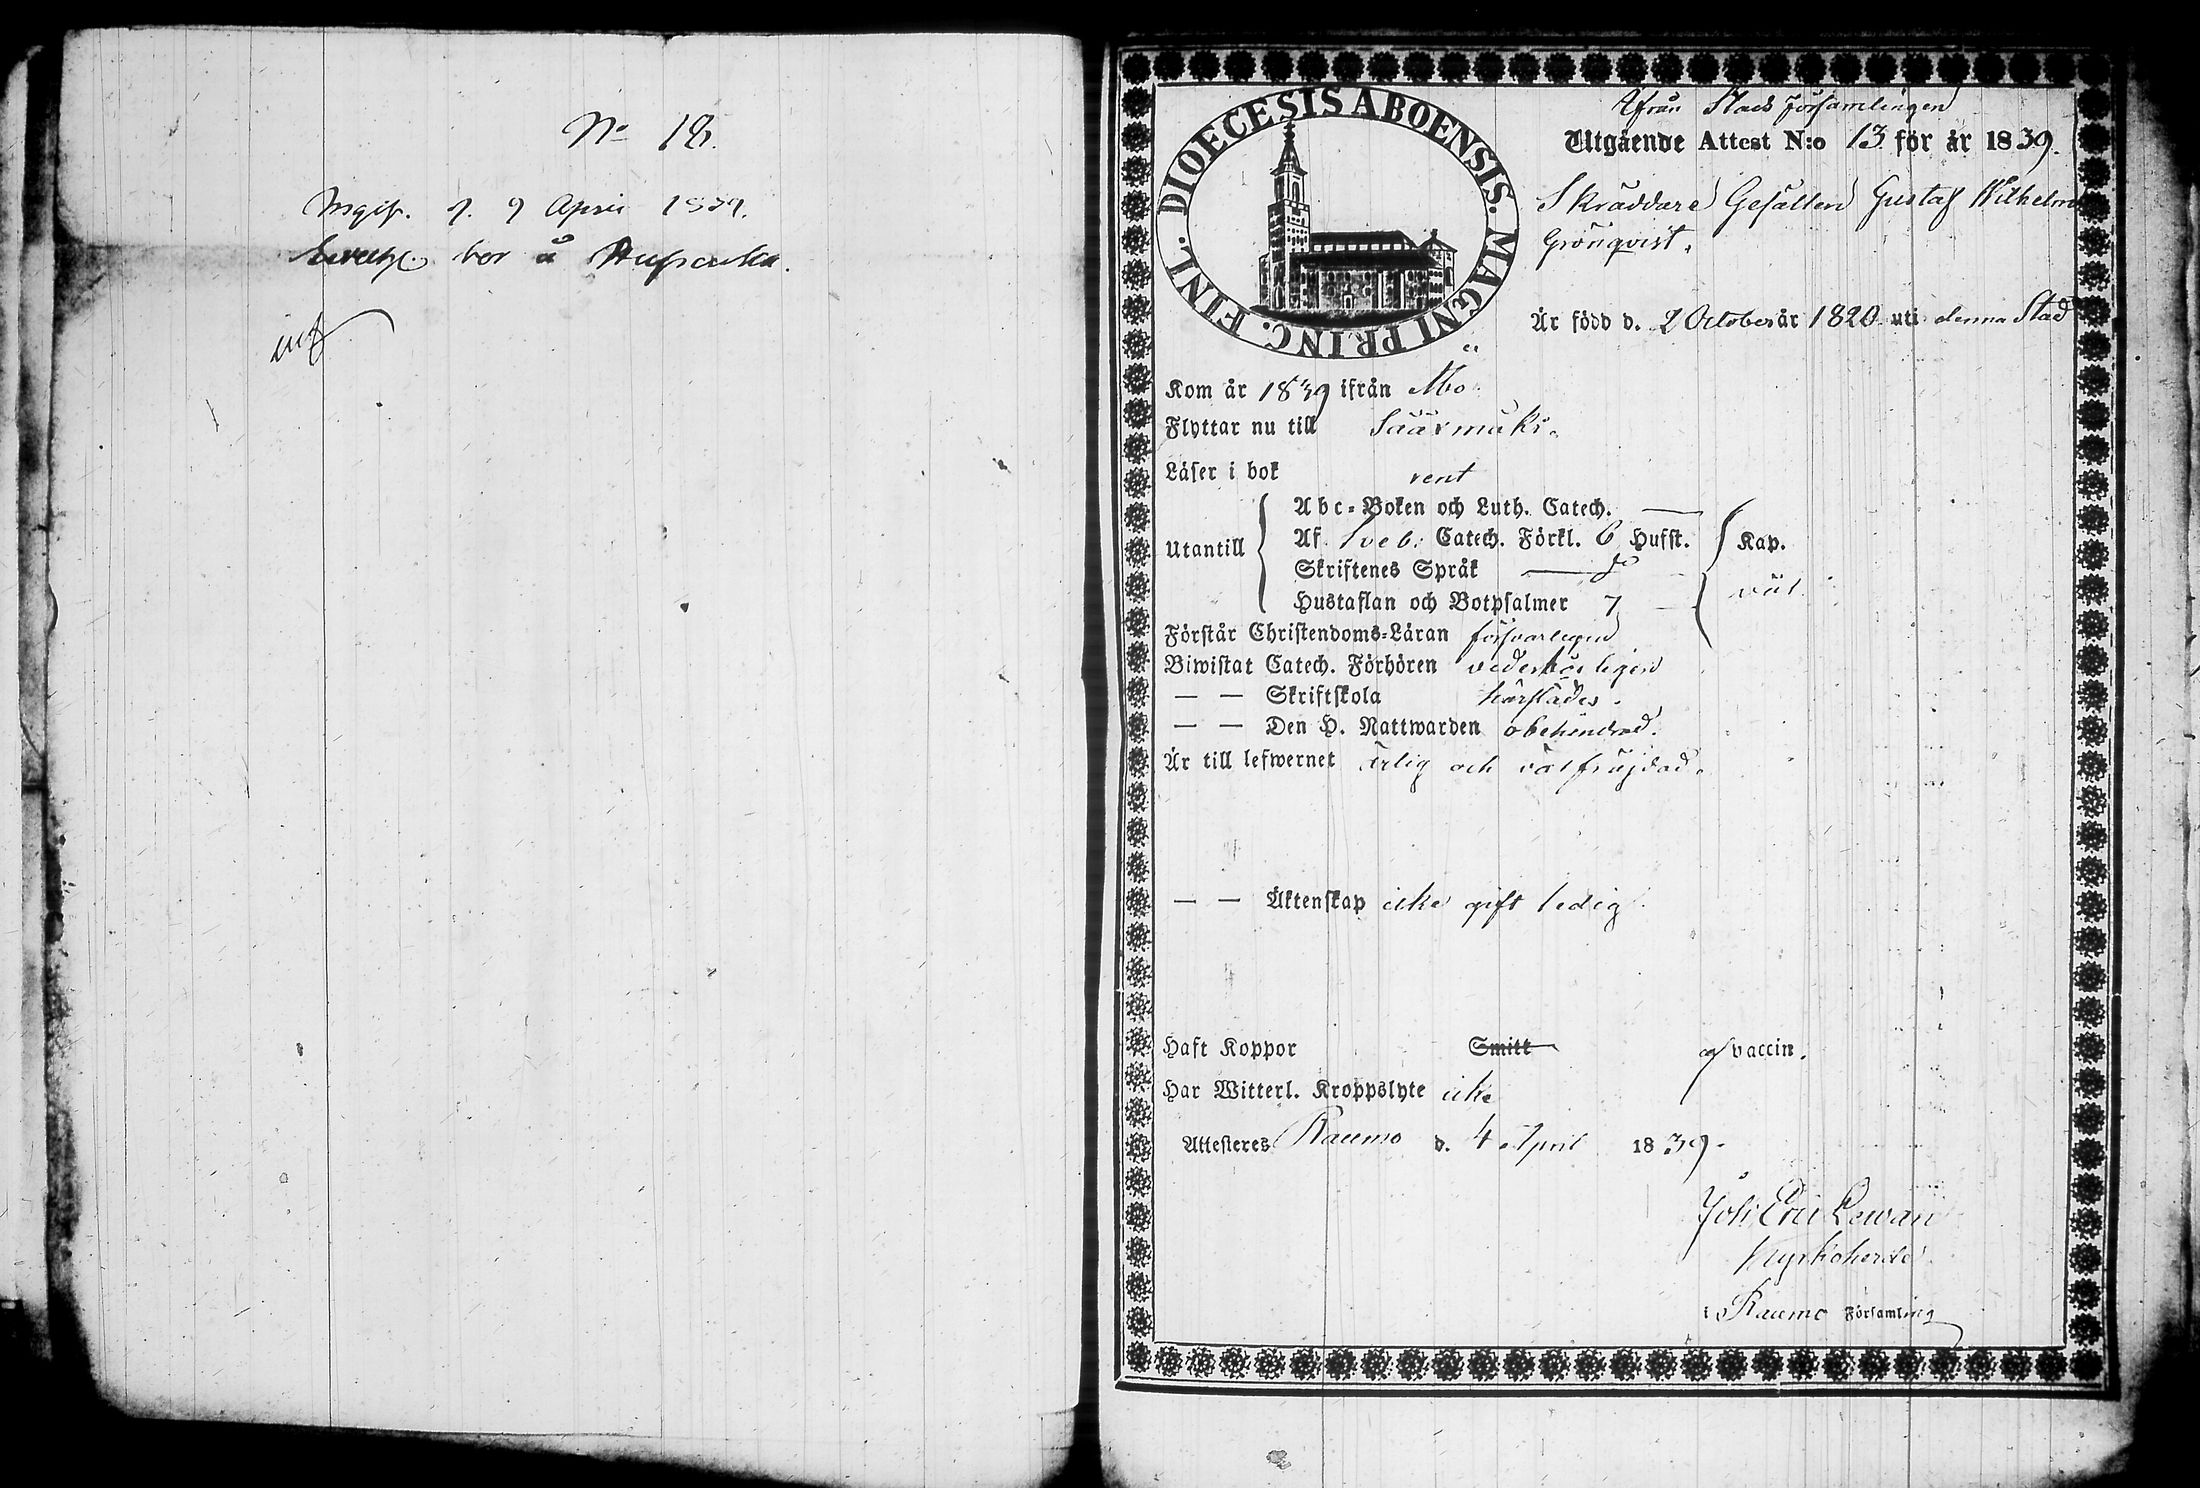 No 18.
d. 9 April 1839.
bor å
DIOECESIS ABOENSIS. MAGNI PRINC. FINL.
Ifrån Stads Församlingen
Utgående Attest N:o 13 för år 1839.
Skräddare Gesällen Gustaf Wilhelm
Grönqvist.
Är född d. 2 October år 1820 uti denna Stad
Kom år 1839 ifrån Åbo
Flyttar nu till Säärmäki.
Läser i bok rent
Utantill
Abc-Boken och Luth. Catech. —
Af Sveb. Catech. Förkl. 6 Hufst.
Skriftenes Språk — do
Hustaflan och Botpsalmer 7 —
Kap.
väl
Förstår Christendoms-Läran försvarligen
Biwistat Catech. Förhören vederbörligen
— — Skriftskola härstädes.
— — Den H. Nattwarden obehindrad.
Är till lefwernet ärlig och välfräjdad.
— — Äktenskap icke gift ledig.
Haft Koppor Smitt af vaccin.
Har Witterl. Kroppslyte icke
Attesteres Raumo d. 4 April 1839.
Joh Eric Lewan
Kyrkoherde
i Raumo Församling